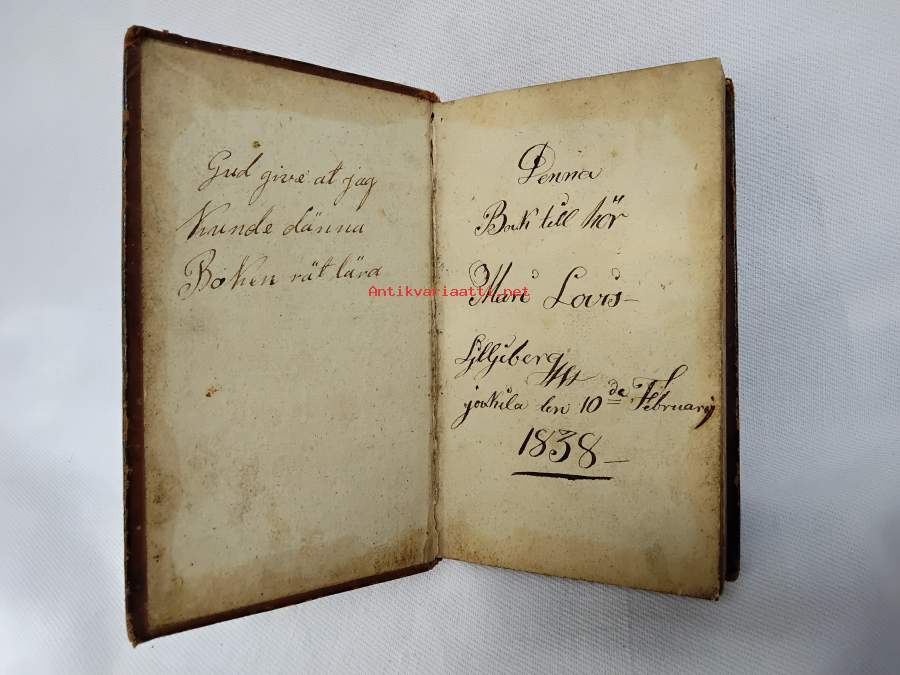 Gud give at jag
Kunde dänna
Boken rät lära
Denna
Bok till hör
Mari Lovis
Liljeberg
jockila den 10de Februarij
1838
Antikvariaatti.net